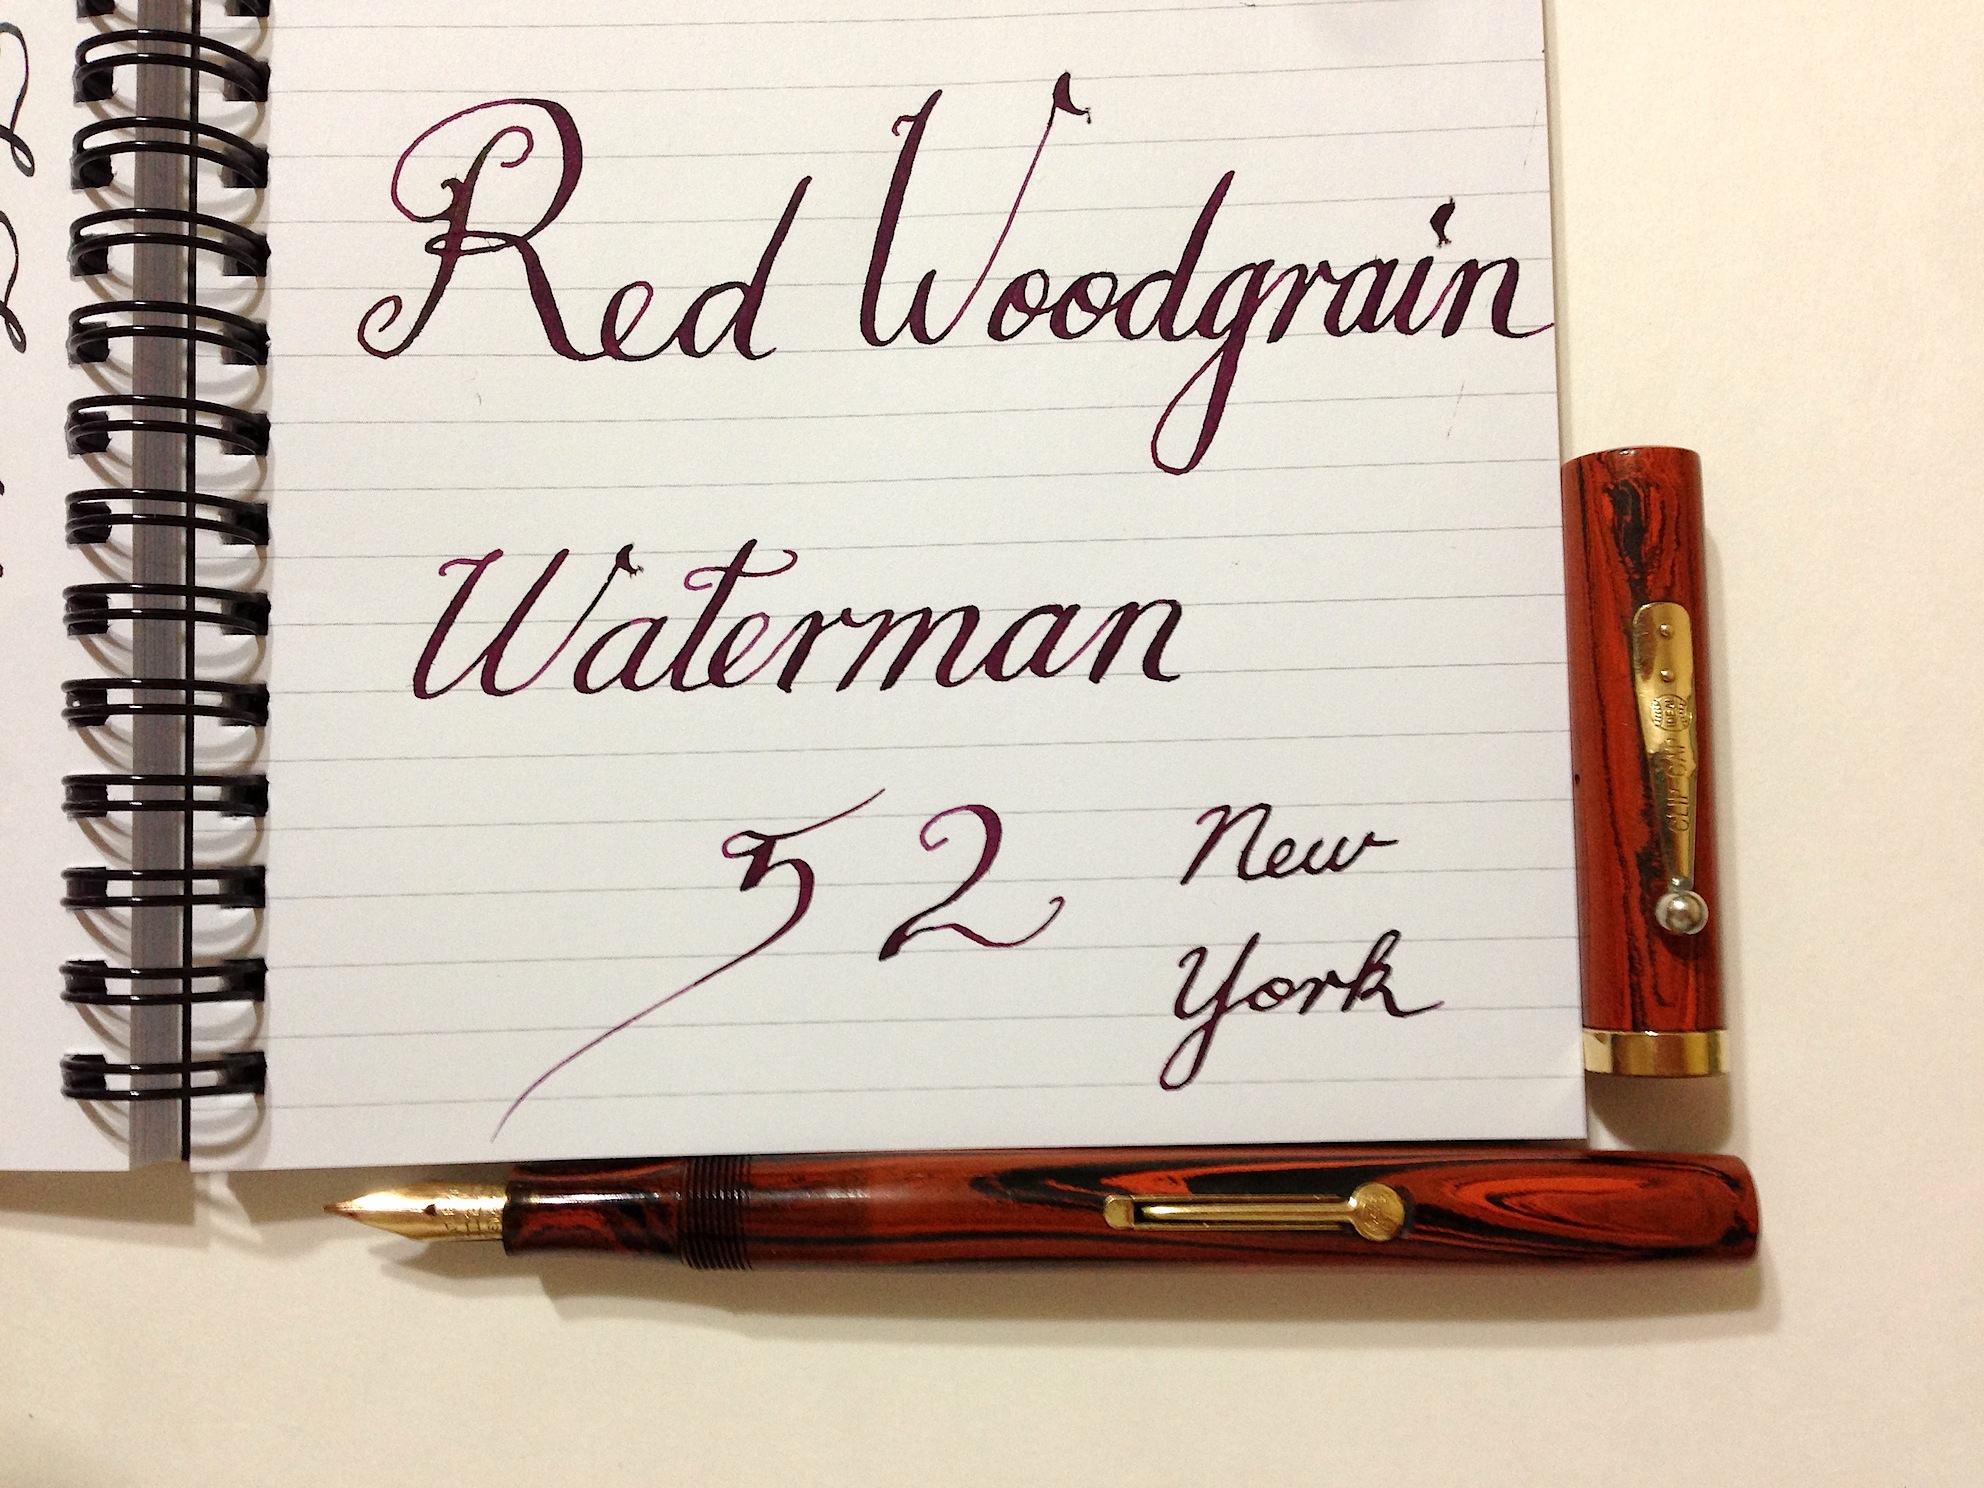 Red Woodgrain
Waterman
52 New
York
CLIP-CAP